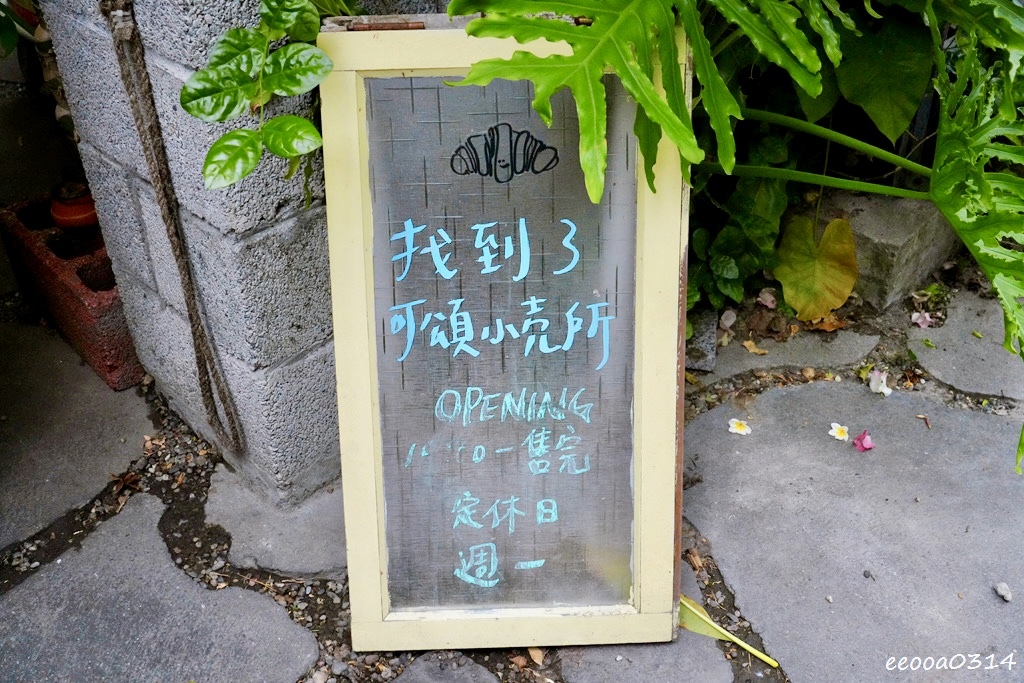 找到了
可頌小売所
OPENING
－售完
定休日
週一
eeooa0314